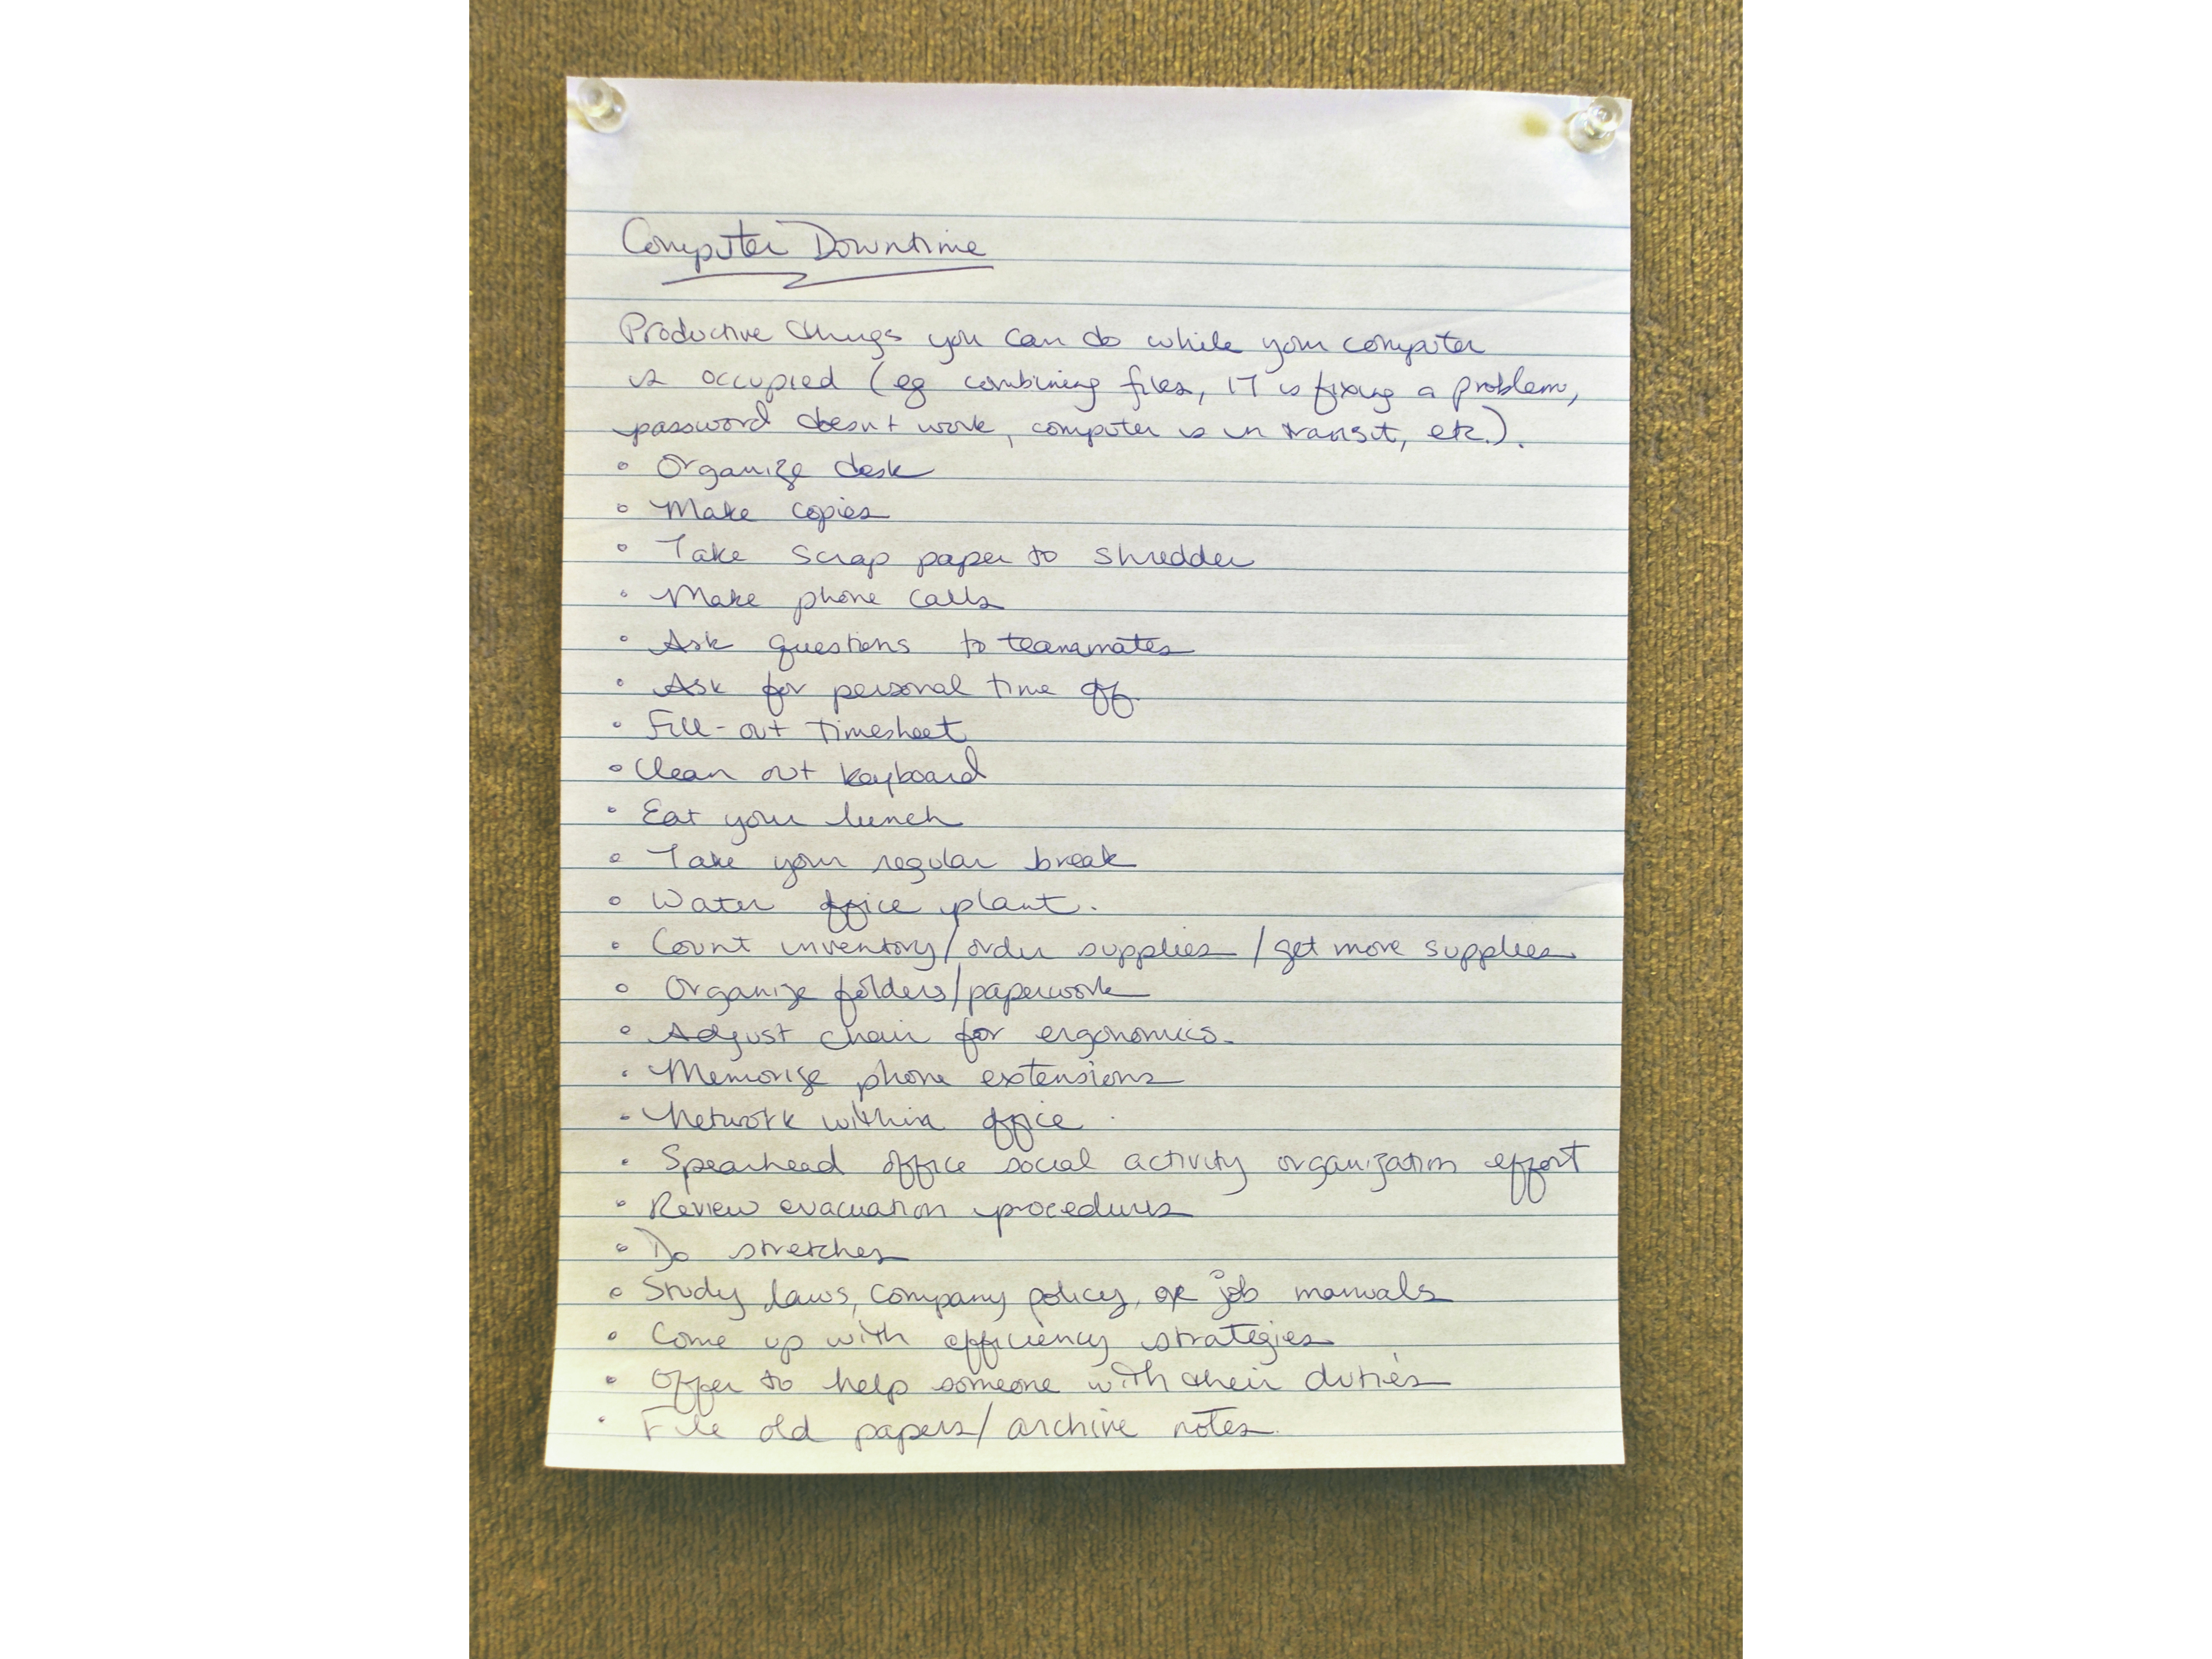 Computer Downtime
Productive things you can do while your computer
is occupied (eg combining files, IT is fixing a problem,
password doesn't work, computer is in transit, etc.).
• Organize desk
• Make copies
• Take scrap paper to shredder
• Make phone calls
• Ask questions to teammates
• Ask for personal time off.
• Fill-out timesheet
• Clean out keyboard
• Eat your lunch
• Take your regular break
• Water office plant.
• Count inventory/order supplies/get more supplies
• Organize folders/paperwork
• Adjust chair for ergonomics.
• Memorize phone extensions
• Network within office
• Spearhead office social activity organization effort
• Review evacuation procedures
• Do stretches
• Study laws, company policy, or job manuals
• Come up with efficiency strategies
• Offer to help someone with their duties
• File old papers/archive notes.